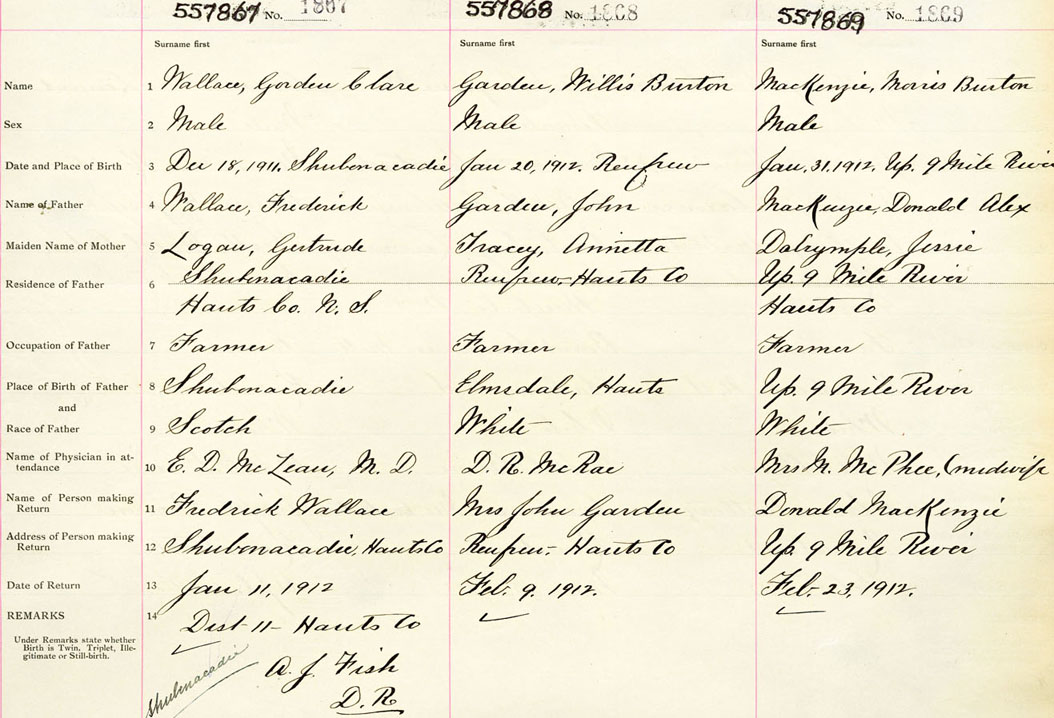 557867 No. 1867 557868 No. 1868 557869 No. 1869
Surname first Surname first Surname first
Name 1 Wallace, Gorden Clare Garden, Willis Burton MacKenzie, Morris Burton
Sex 2 Male Male Male
Date and Place of Birth 3 Dec 18, 1911. Shubenacadie Jan 20, 1912. Renfrew Jan. 31. 1912. Up. 9 Mile River
Name of Father 4 Wallace, Frederick Garden, John MacKenzie, Donald Alex
Maiden Name of Mother 5 Logan, Gertrude Tracey, Annetta Dalrymple, Jessie
Residence of Father 6 Shubenacadie Renfrew, Hants Co Up. 9 Mile River
Hants Co. N. S. Hants Co
Occupation of Father 7 Farmer Farmer Farmer
Place of Birth of Father 8 Shubenacadie Elmsdale, Hants Up. 9 Mile River
and
Race of Father 9 Scotch White White
Name of Physician in at-
tendance 10 E. D. McLean, M. D. D. R. McRae Mrs M. McPhee, (midwife
Name of Person making
Return 11 Fredrick Wallace Mrs John Garden Donald MacKenzie
Address of Person making
Return 12 Shubenacadie, Hants Co Renfrew, Hants Co Up. 9 Mile River
Date of Return 13 Jan 11, 1912 Feb. 9. 1912. Feb. 23, 1912.
REMARKS 14 Dist 11 - Hants Co
Under Remarks state whether
Birth is Twin, Triplet, Ille-
gitimate or Still-birth.
Shubenacadie
A. J. Fish
D. R.